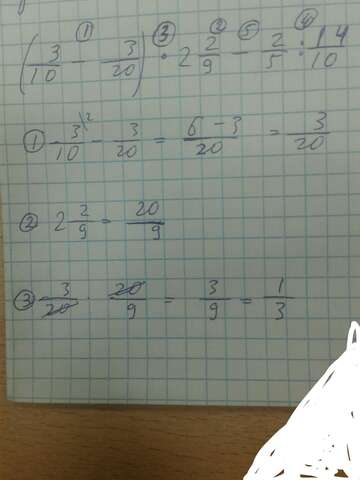 ① ③ ② ⑤ ④
(3/10 - 3/20) · 2 2/9 - 2/5 : 14/10
① 3\²/10 - 3/20 = 6-3/20 = 3/20
② 2 2/9 = 20/9
③ 3/20 · 20/9 = 3/9 = 1/3